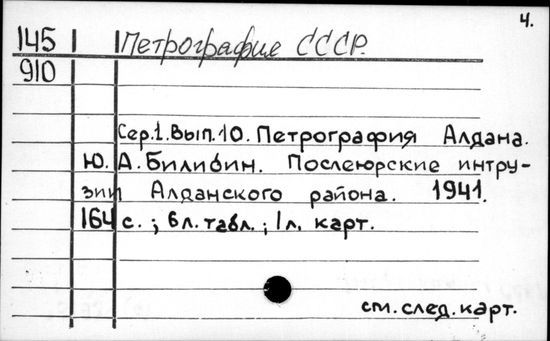 4.
145 Петрография СССР.
910
Сер.1. Вып.10. Петрография Алдана.
Ю.А. Билибин. Послеюрские интру-
зии Алданского района. 1941.
164 с. ; 6 л. табл. ; 1 л. карт.
см. след. карт.